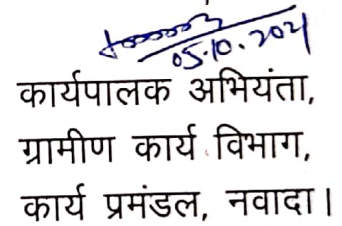 05.10.2021
कार्यपालक अभियंता,
ग्रामीण कार्य विभाग,
कार्य प्रमंडल, नवादा।